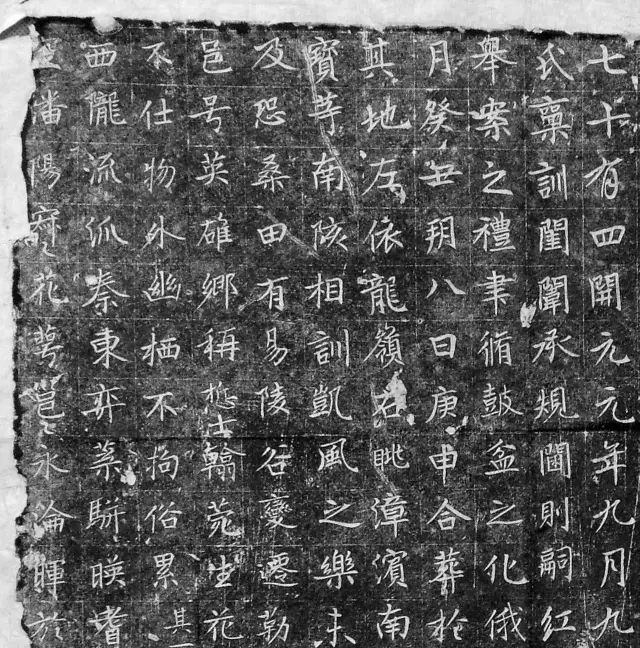 七十有四開元元年九月九
氏稟訓閨闈承規閫則嗣紅
舉案之禮聿循鼓盆之化俄
月癸丑朔八日庚申合葬於
其地左依龍嶺右眺漳濱南
寶南陔相訓凱風之樂未
及恐桑田有易陵谷變遷勒
邑号英雄鄉稱悊士翰菀生花
不仕物外幽栖不拘俗累其一
西隴流派秦東弈葉駢暎
陽花萼邕々永淪暉於